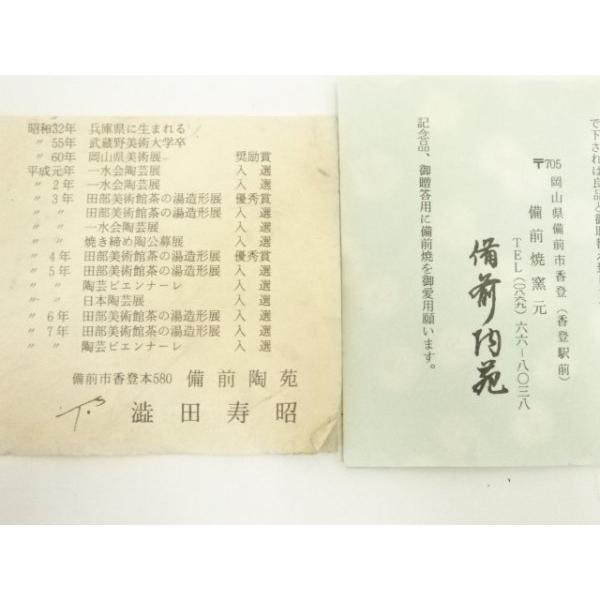 昭和32年 兵庫県に生まれる
〃55年 武蔵野美術大学卒
〃60年 岡山県美術展 奨励賞
平成元年 一水会陶芸展 入選
〃2年 一水会陶芸展 入選
〃3年 田部美術館茶の湯造形展 優秀賞
〃 〃 田部美術館茶の湯造形展 入選
〃 〃 一水会陶芸展 入選
〃 〃 焼き締め陶公募展 入選
〃4年 田部美術館茶の湯造形展 優秀賞
〃5年 田部美術館茶の湯造形展 入選
〃 〃 陶芸ビエンナーレ 入選
〃 〃 日本陶芸展 入選
〃6年 田部美術館茶の湯造形展 入選
〃7年 田部美術館茶の湯造形展 入選
〃 〃 陶芸ビエンナーレ 入選
備前市香登本580 備前陶苑
澁田寿昭
で下されは良品と御取替
記念品、御贈答用に備前焼を御愛用願います。
〒705 岡山県備前市香登(香登駅前)
備前焼窯元
備前陶苑
TEL(〇八六九)六六-八〇三八